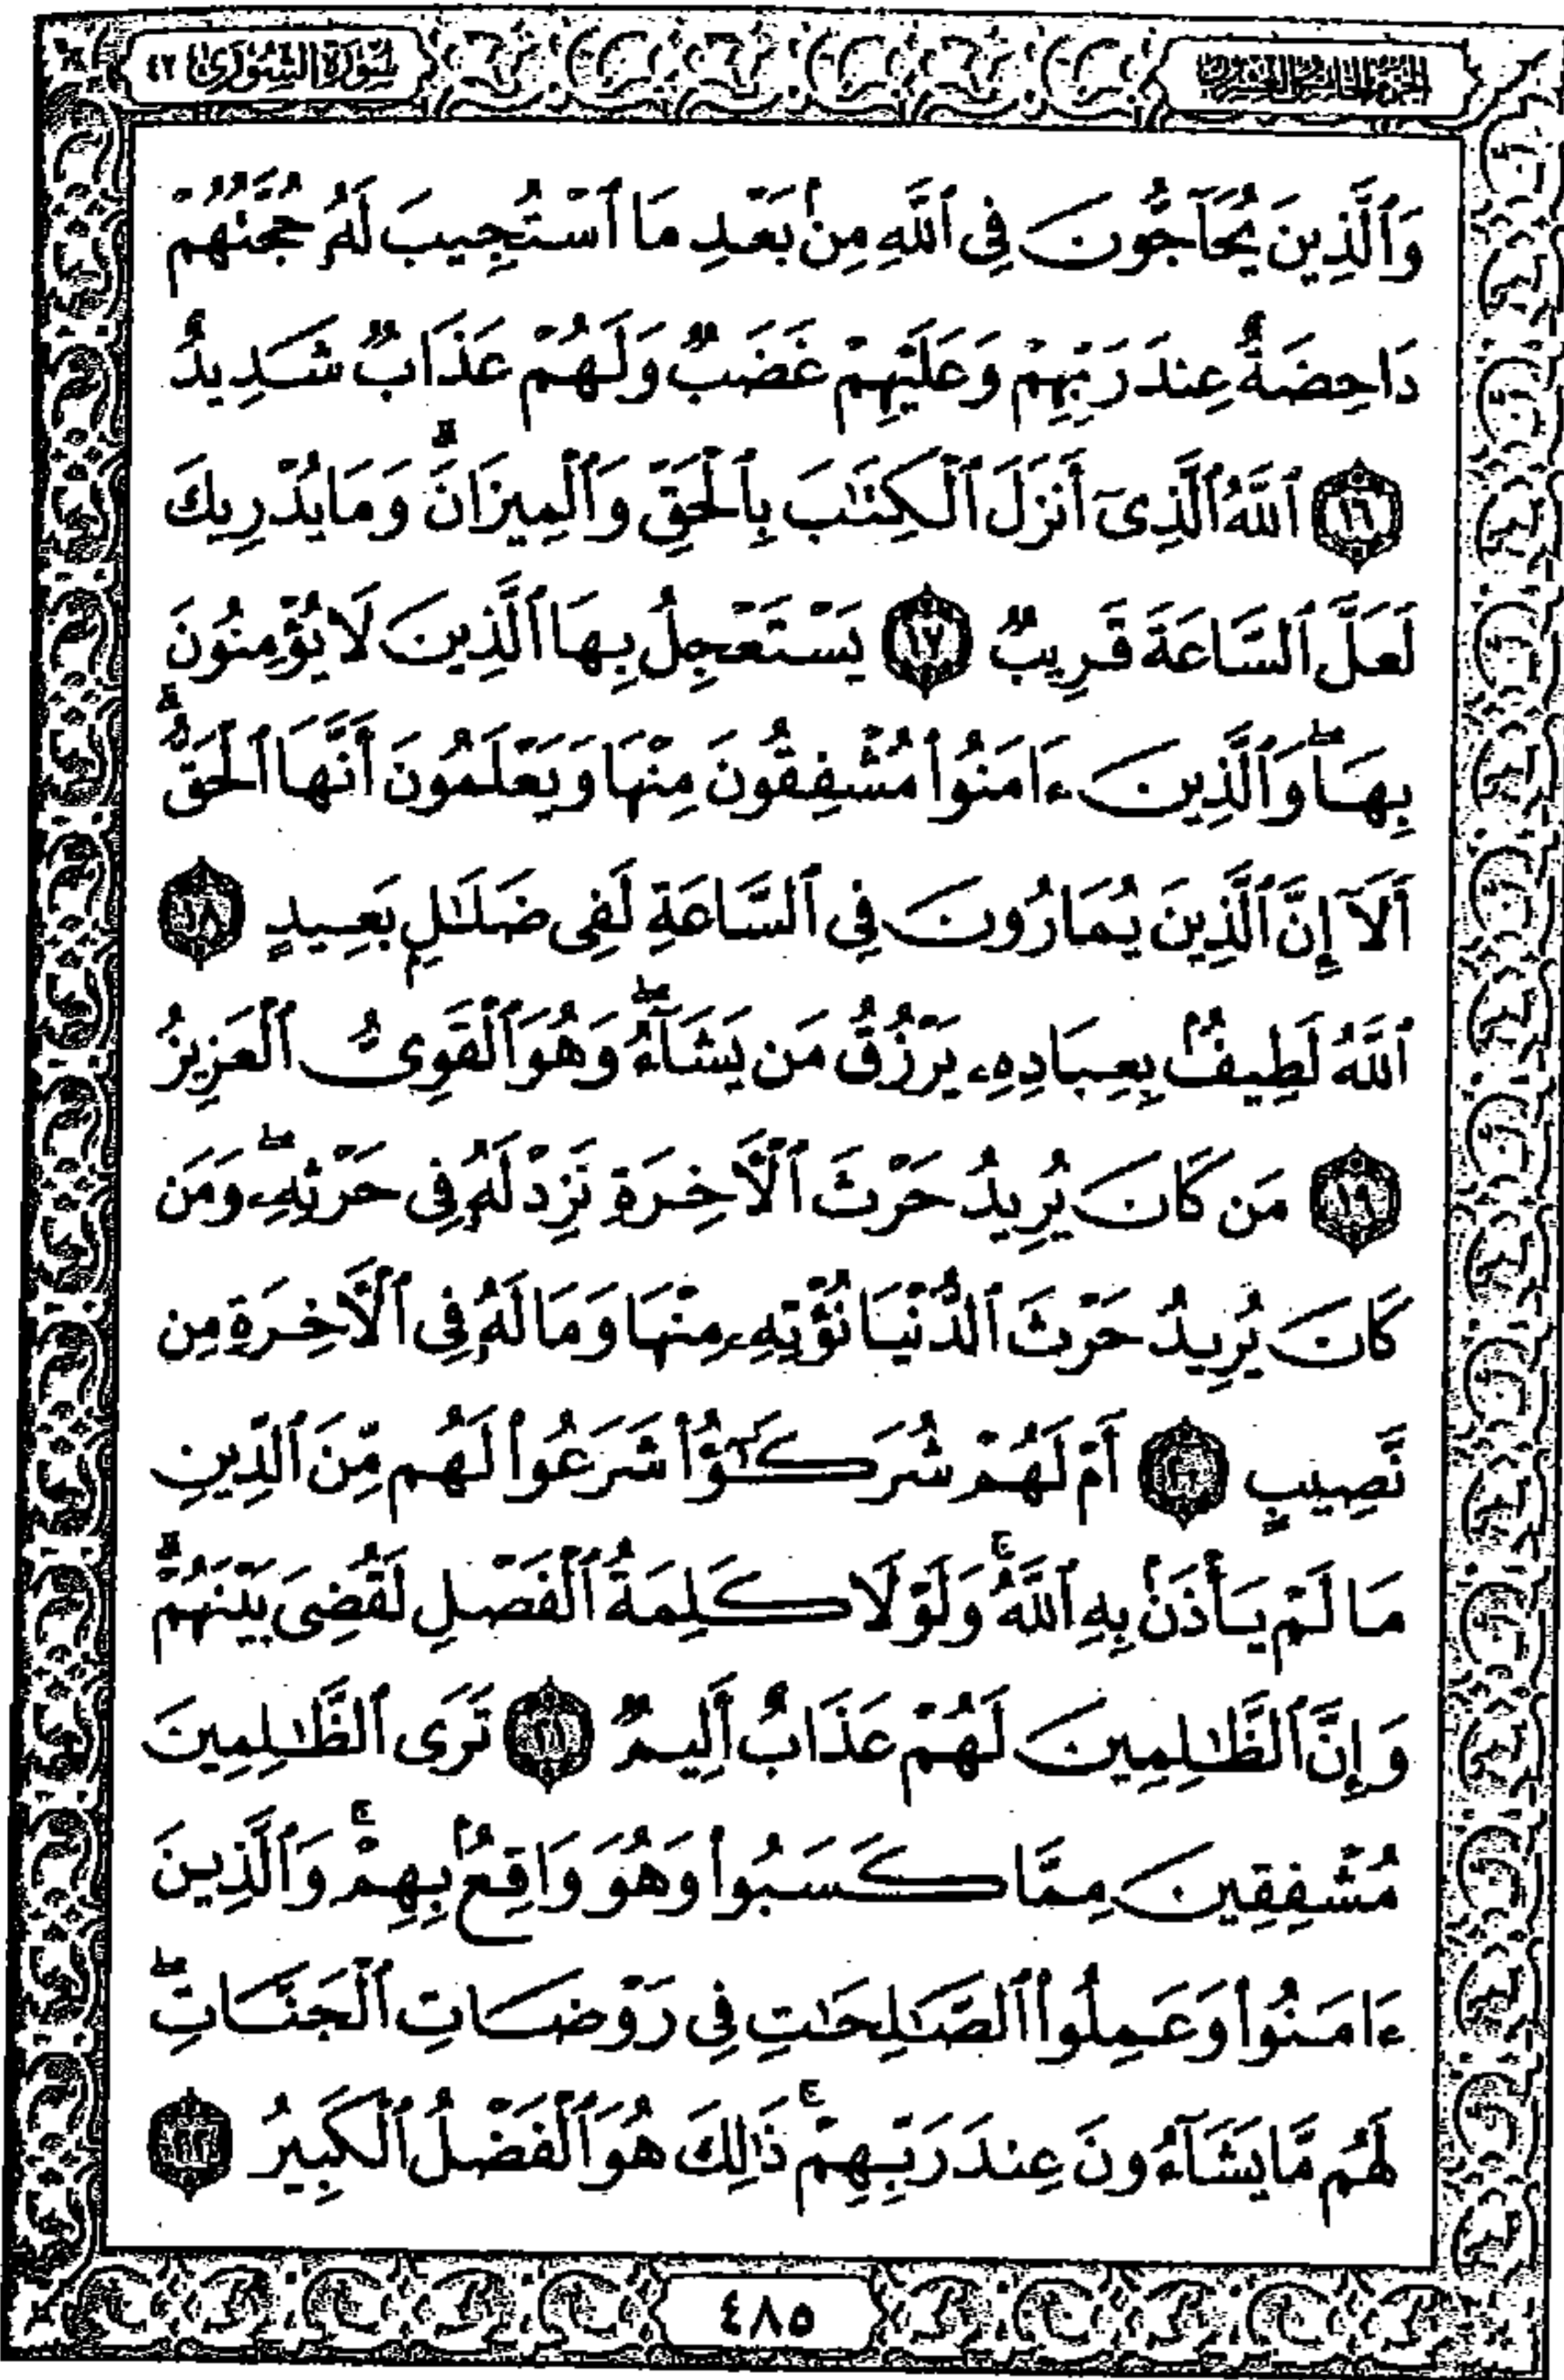 الجزء الخامس والعشرون
سورة الشورى ٤٢
وَٱلَّذِينَ يُحَآجُّونَ فِى ٱللَّهِ مِنۢ بَعْدِ مَا ٱسْتُجِيبَ لَهُۥ حُجَّتُهُمْ
دَاحِضَةٌ عِندَ رَبِّهِمْ وَعَلَيْهِمْ غَضَبٌ وَلَهُمْ عَذَابٌ شَدِيدٌ
١٦ ٱللَّهُ ٱلَّذِىٓ أَنزَلَ ٱلْكِتَٰبَ بِٱلْحَقِّ وَٱلْمِيزَانَ ۗ وَمَا يُدْرِيكَ
لَعَلَّ ٱلسَّاعَةَ قَرِيبٌ ١٧ يَسْتَعْجِلُ بِهَا ٱلَّذِينَ لَا يُؤْمِنُونَ
بِهَا ۖ وَٱلَّذِينَ ءَامَنُوا۟ مُشْفِقُونَ مِنْهَا وَيَعْلَمُونَ أَنَّهَا ٱلْحَقُّ ۗ
أَلَآ إِنَّ ٱلَّذِينَ يُمَارُونَ فِى ٱلسَّاعَةِ لَفِى ضَلَٰلٍۭ بَعِيدٍ ١٨
ٱللَّهُ لَطِيفٌۢ بِعِبَادِهِۦ يَرْزُقُ مَن يَشَآءُ ۖ وَهُوَ ٱلْقَوِىُّ ٱلْعَزِيزُ
١٩ مَن كَانَ يُرِيدُ حَرْثَ ٱلْءَاخِرَةِ نَزِدْ لَهُۥ فِى حَرْثِهِۦ ۖ وَمَن
كَانَ يُرِيدُ حَرْثَ ٱلدُّنْيَا نُؤْتِهِۦ مِنْهَا وَمَا لَهُۥ فِى ٱلْءَاخِرَةِ مِن
نَّصِيبٍ ٢٠ أَمْ لَهُمْ شُرَكَٰٓؤُا۟ شَرَعُوا۟ لَهُم مِّنَ ٱلدِّينِ
مَا لَمْ يَأْذَنۢ بِهِ ٱللَّهُ ۚ وَلَوْلَا كَلِمَةُ ٱلْفَصْلِ لَقُضِىَ بَيْنَهُمْ ۗ
وَإِنَّ ٱلظَّٰلِمِينَ لَهُمْ عَذَابٌ أَلِيمٌ ٢١ تَرَى ٱلظَّٰلِمِينَ
مُشْفِقِينَ مِمَّا كَسَبُوا۟ وَهُوَ وَاقِعٌۢ بِهِمْ ۗ وَٱلَّذِينَ
ءَامَنُوا۟ وَعَمِلُوا۟ ٱلصَّٰلِحَٰتِ فِى رَوْضَاتِ ٱلْجَنَّاتِ ۖ
لَهُم مَّا يَشَآءُونَ عِندَ رَبِّهِمْ ۚ ذَٰلِكَ هُوَ ٱلْفَضْلُ ٱلْكَبِيرُ ٢٢
٤٨٥